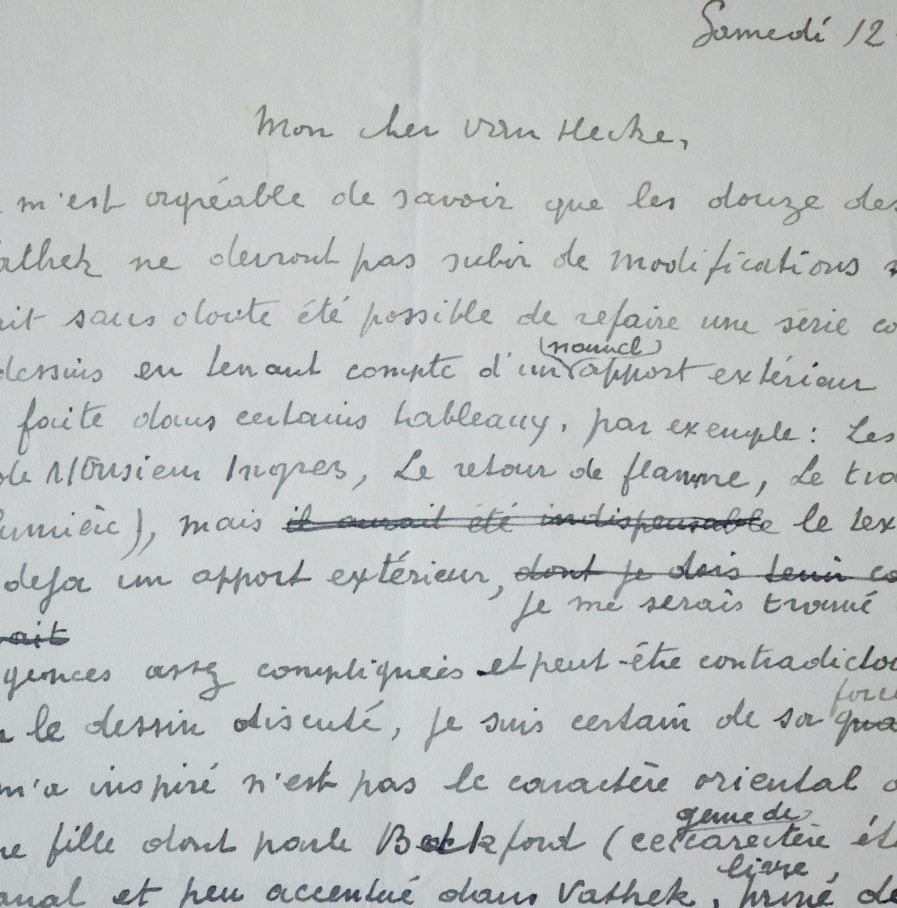 Samedi 12
Mon cher van Hecke,
m'est agréable de savoir que les douze des
athek ne devront pas subir de modifications
ait sans doute été possible de refaire une série co
(nouvel)
dessins en tenant compte d'un apport extérieur
faite dans certains tableaux, par exemple : Les
de Monsieur Ingres, Le retour de flamme, Le tra
lumière), mais il aurait été indispensable le tex
deja un apport extérieur, dont je dois tenir co
je me serais trouvé
rait
gences assez compliquées et peut-être contradictoi
force
le dessin discuté, je suis certain de sa qua
m'a inspiré n'est pas le caractère oriental
genre de
ne fille dont parle Beckford (ce caractère ét
livre,
anal et peu accentué dans Vathek, privé de